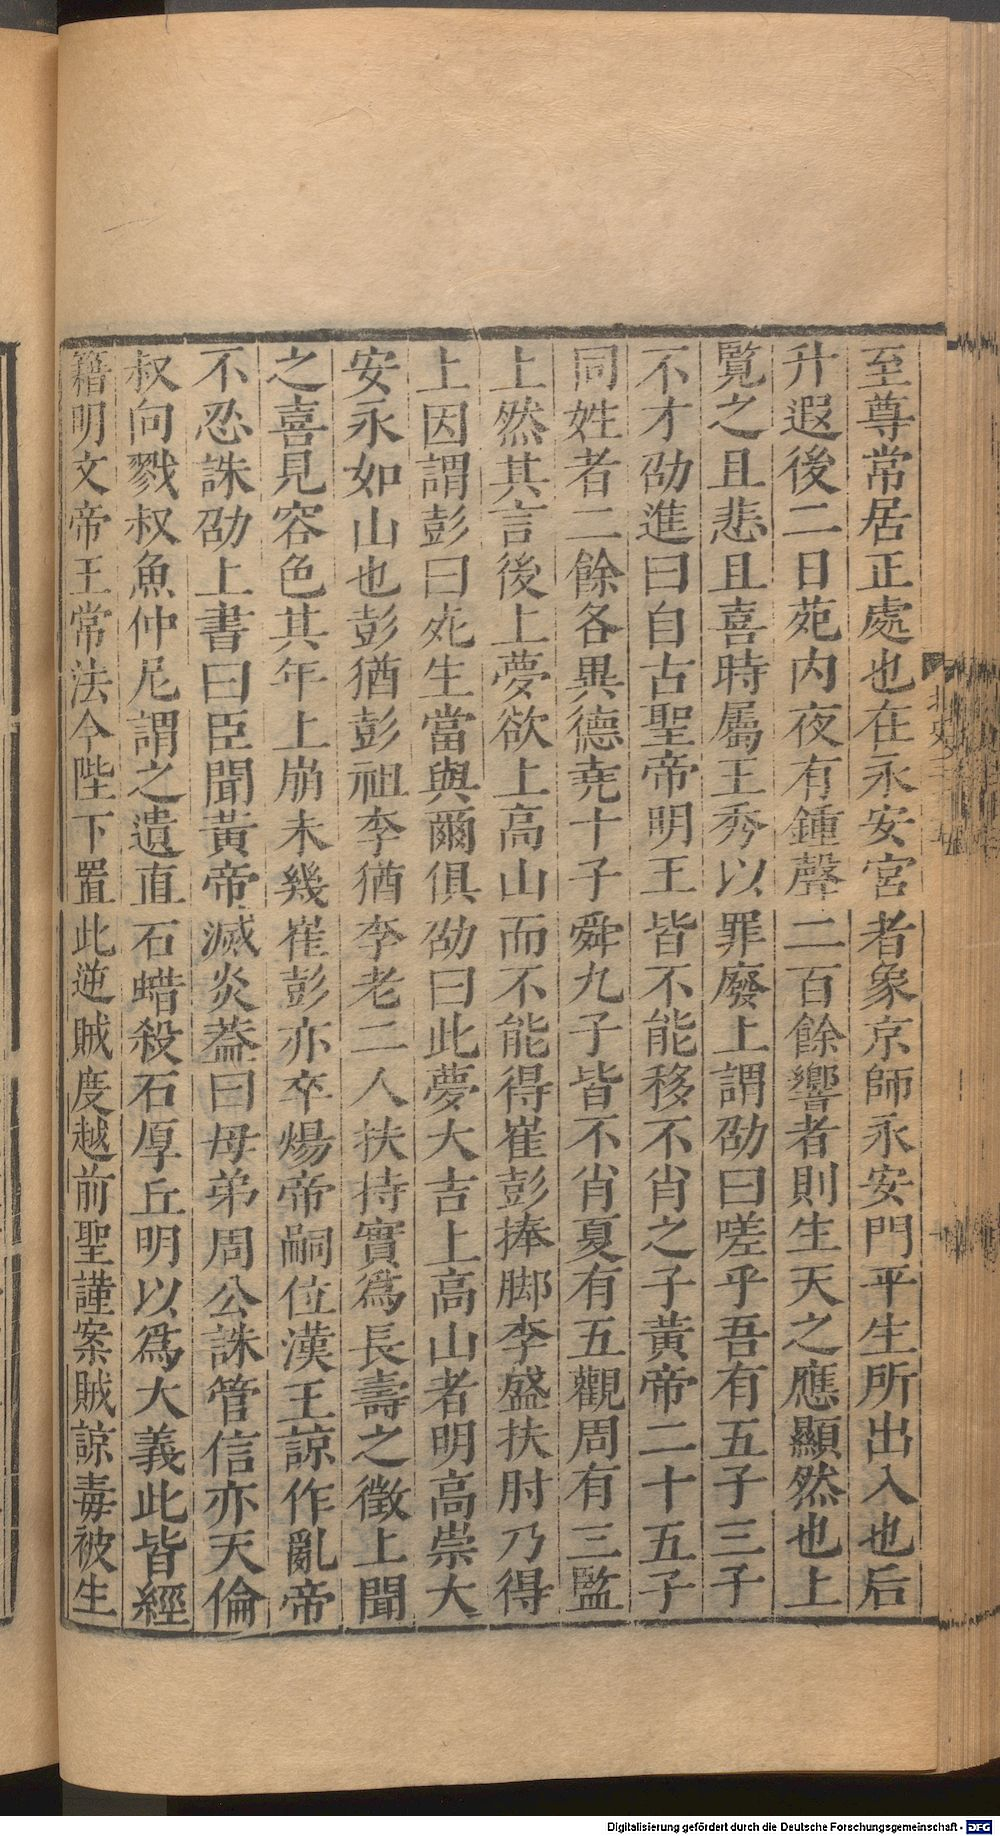 至尊常居正處也在永安宮者象京師永安門平生所出入也后
升遐後二日苑内夜有鍾聲二百餘響者則生天之應顯然也上
覧之且悲且喜時屬王秀以罪廢上謂劭曰嗟乎吾有五子三子
不才劭進曰自古聖帝明王皆不能移不肖之子黃帝二十五子
同姓者二餘各異德堯十子舜九子皆不肖夏有五觀周有三監
上然其言後上夢欲上高山而不能得崔彭捧脚李盛扶肘乃得
上因謂彭曰死生當與爾俱劭曰此夢大吉上高山者明高崇大
安永如山也彭猶彭祖李猶李老二人扶持實爲長壽之徵上聞
之喜見容色其年上崩未幾崔彭亦卒煬帝嗣位漢王諒作亂帝
不忍誅劭上書曰臣聞黃帝滅炎葢曰母弟周公誅管信亦天倫
叔向戮叔魚仲尼謂之遺直石蜡殺石厚丘明以爲大義此皆經
籍明文帝王常法今陛下置此逆賊度越前聖謹案賊諒毒被生
北史
Digitalisierung gefördert durch die Deutsche Forschungsgemeinschaft - DFG